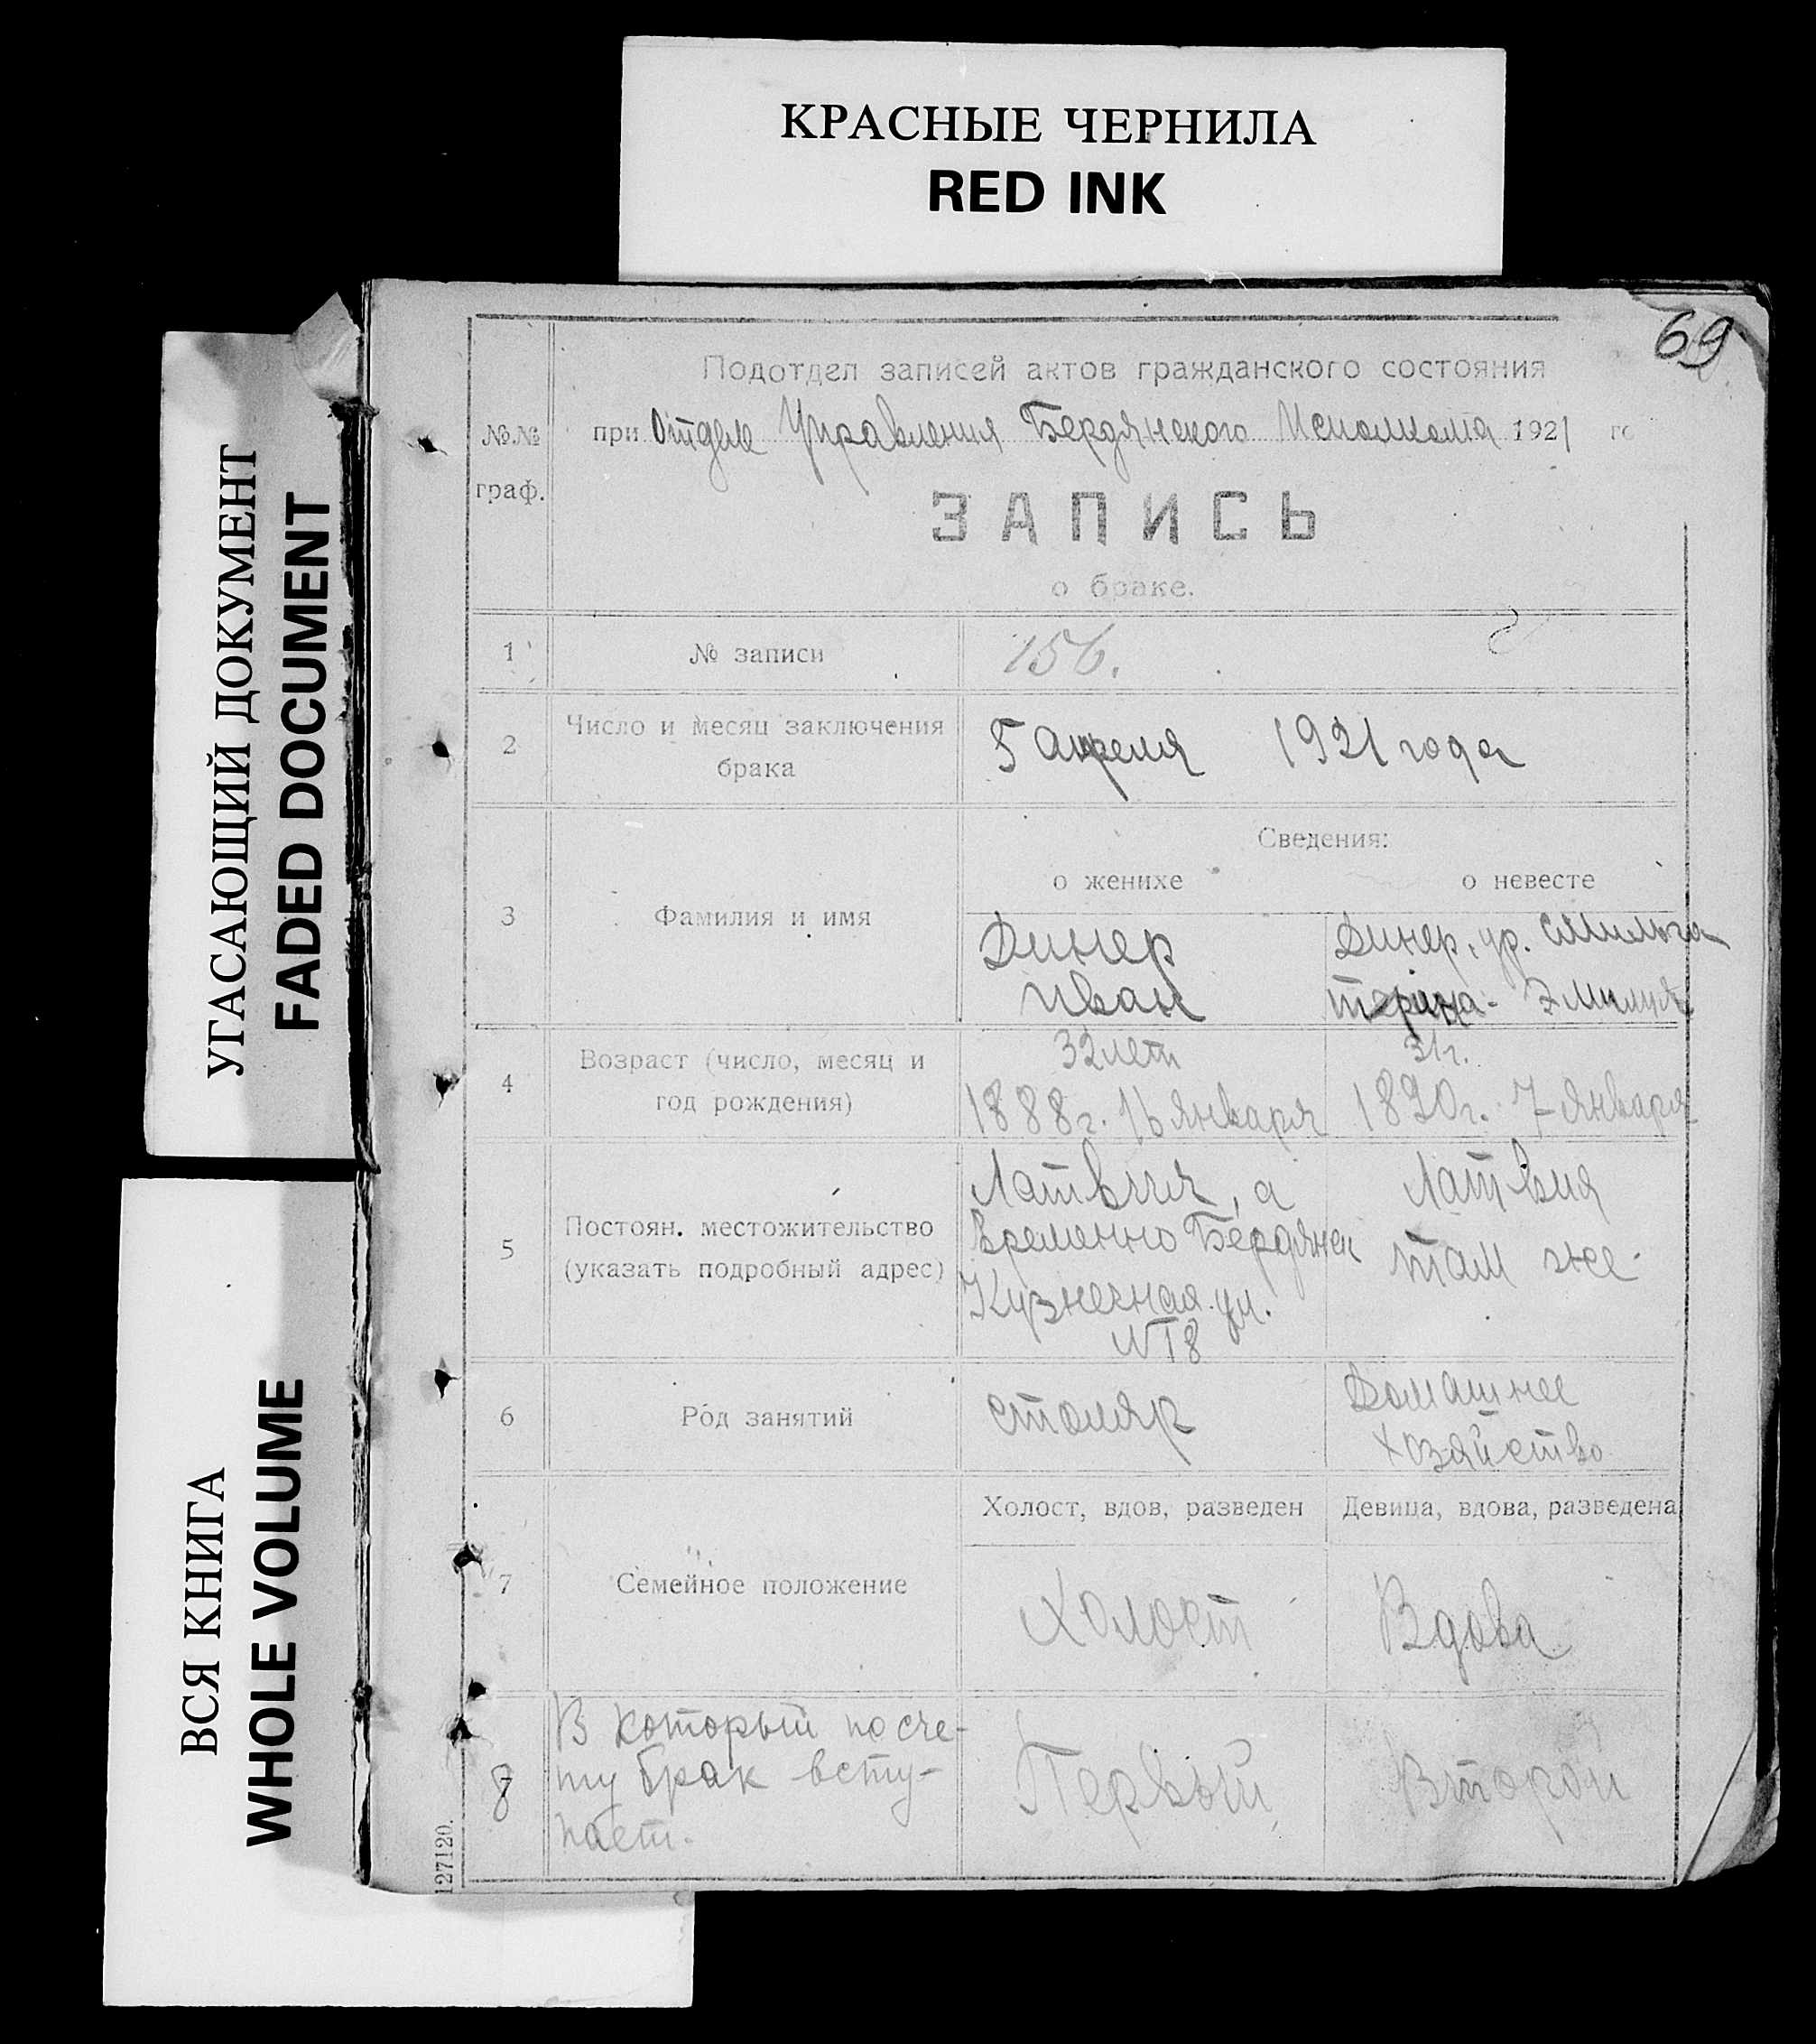 КРАСНЫЕ ЧЕРНИЛА
RED INK
УГАСАЮЩИЙ ДОКУМЕНТ
FADED DOCUMENT
ВСЯ КНИГА
WHOLE VOLUME
69
№№
граф.
Подотдел записей актов гражданского состояния
при Отделе Управления Бердянского Исполкома 1921 го
ЗАПИСЬ
о браке.
1
№ записи
156.
2
Число и месяц заключения
брака
5 апреля 1921 года
Сведения:
о женихе
о невесте
3
Фамилия и имя
Динер
Иван
Динер, ур.
Эмилия
4
Возраст (число, месяц и
год рождения)
32 лет
1888г. 16 января
31г.
1890г. 7 января
5
Постоян. местожительство
(указать подробный адрес)
Латвия, а
временно Бердянск
Кузнечная ул.
Латвия
там же.
6
Род занятий
столяр
Домашнее
хозяйство
7
Семейное положение
Холост, вдов, разведен
Девица, вдова, разведена
Холост
Вдова
8
В который по сче-
ту брак всту-
пает.
Первый
Второй
127120.